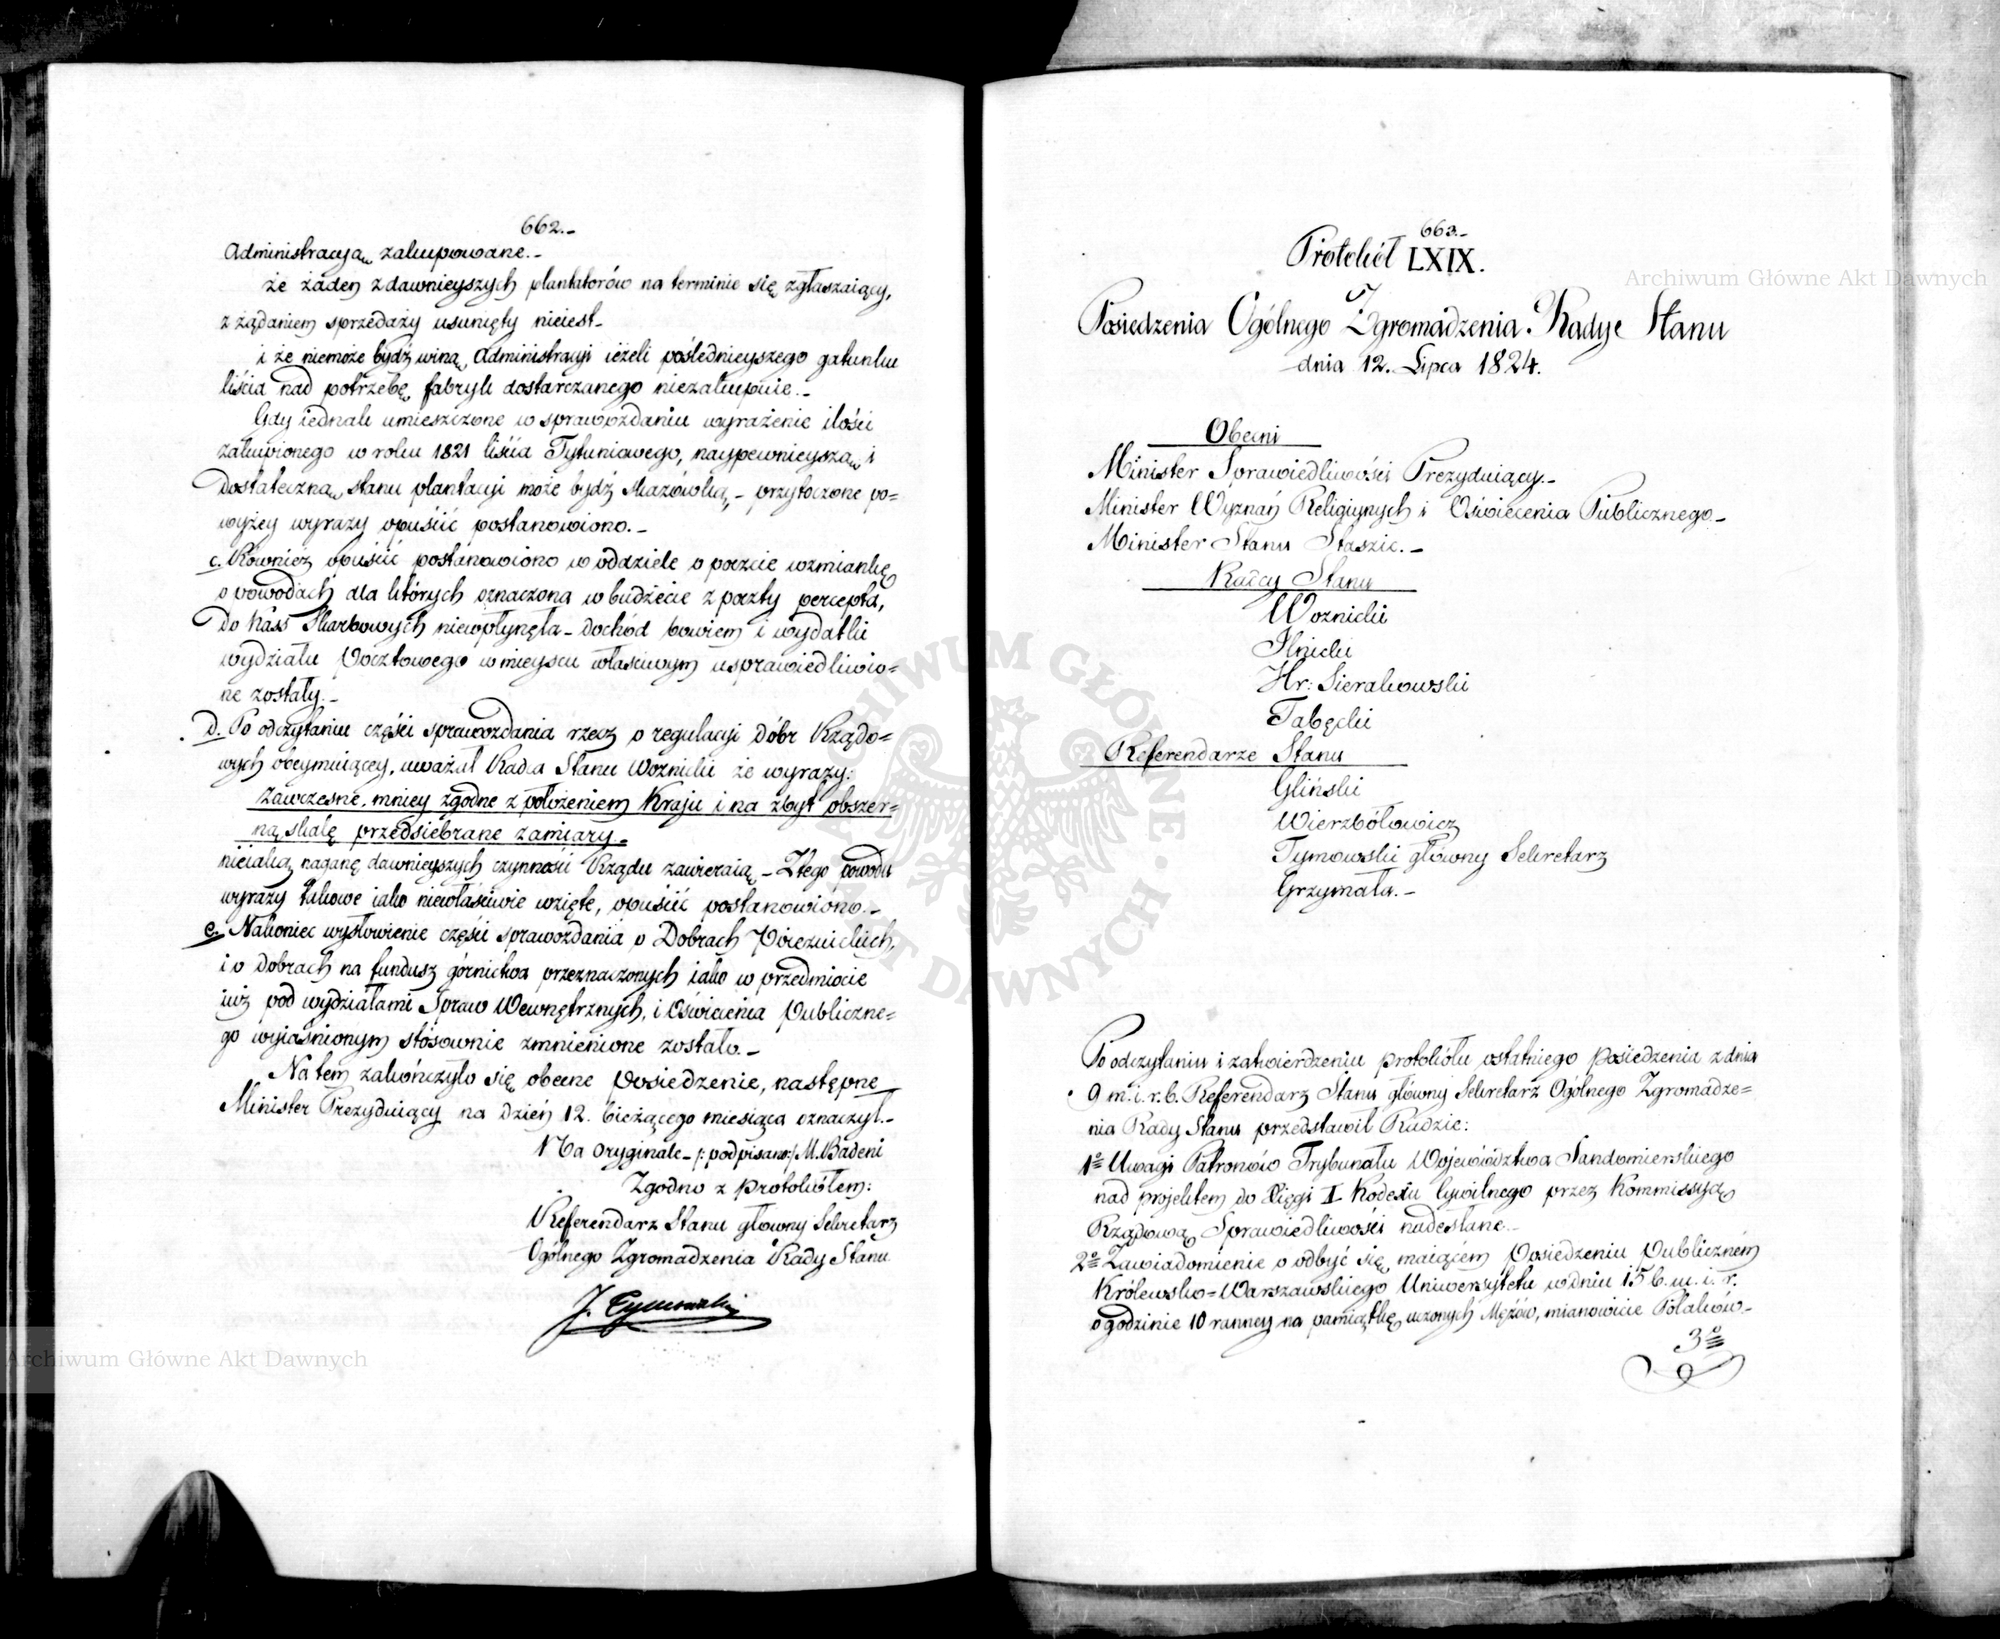 662.-
Administracyą zakupowane.-
że żaden z dawnieyszych plantatorów na terminie się zgłaszaiący,
z żądaniem sprzedaży usunięty nieiest-
i że niemoże bydź winą Administracyi ieżeli poślednieyszego gatunku
liścia nad potrzebę fabryk dostarczanego niezakupuie.-
Gdy iednak umieszczone w sprawozdaniu wyrażenie ilości
zakupionego w roku 1821 liścia Tytuniowego, naypewnieyszą i
dostateczną stanu plantacyi może bydź skazówką,- przytoczone po=
wyżey wyrazy opuścić postanowiono.-
c. Również opuścić postanowiono w oddziele o poczcie wzmiankę
o powodach dla których oznaczona w budżecie z poczty percepta,
do Kass Skarbowych niewpłynęła- dochód bowiem i wydatki
wydziału Pocztowego w mieyscu właściwym usprawiedliwio=
ne zostały.-
d. Po odczytaniu części sprawozdania rzecz o regulacyi dóbr Rządo=
wych obeymuiącey, uważał Radca Stanu Woznicki że wyrazy:
zawczesne, mniey zgodne z położeniem Kraju i na zbyt obszer=
ną skalę przedsiebrane zamiary.
nieiaką naganę dawnieyszych czynności Rządu zawieraią- Z tego powodu
wyrazy takowe iako niewłaściwie wzięte, opuścić postanowiono.-
e. Nakoniec wysłowienie części sprawozdania o Dobrach Poiezuickich,
i o dobrach na fundusz górnictwa przeznaczonych iako w przedmiocie
iuż pod wydziałami Spraw Wewnętrznych, i Oświecenia Publiczne=
go wyiaśnionym stósownie zmnienione zostało.-
Na tem zakończyło się obecne Posiedzenie, następne
Minister Prezyduiący na dzień 12. bieżącego miesiąca oznaczył.-
Na oryginale- /:podpisano:/ M. Badeni
Zgodno z Protokółem:
Referendarz Stanu główny Sekretarz
Ogólnego Zgromadzenia Rady Stanu
J. Tymowski
663.-
Protokół LXIX.
Posiedzenia Ogólnego Zgromadzenia Rady Stanu
dnia 12. Lipca 1824.
Obecni
Minister Sprawiedliwości Prezyduiący.-
Minister Wyznań Religiynych i Oświecenia Publicznego-
Minister Stanu Staszic.-
Radcy Stanu
Woznicki
Ilnicki
Hr: Sierakowski
Tabęcki
Referendarze Stanu
Gliński
Wierzbółowicz
Tymowski główny Sekretarz
Grzymała.-
Po odczytaniu i zatwierdzeniu protokółu ostatniego Posiedzenia z dnia
9 m. i. r. b. Referendarz Stanu główny Sekretarz Ogólnego Zgromadze=
nia Rady Stanu przedstawił Radzie:
1º Uwagi Patronów Trybunału Województwa Sandomierskiego
nad projektem do Xięgi I Kodexu Cywilnego przez Kommissyą
Rządową Sprawiedliwości nadesłane.-
2º Zawiadomienie o odbyć się maiącém Posiedzeniu Publiczném
Królewsko=Warszawskiego Uniwersytetu w dniu 15 b. m. i. r.
o godzinie 10 ranney na pamiątkę uczonych Mężów, mianowicie Polaków.-
3º
Archiwum Główne Akt Dawnych
Archiwum Główne Akt Dawnych
ARCHIWUM GŁÓWNE · AKT DAWNYCH ·